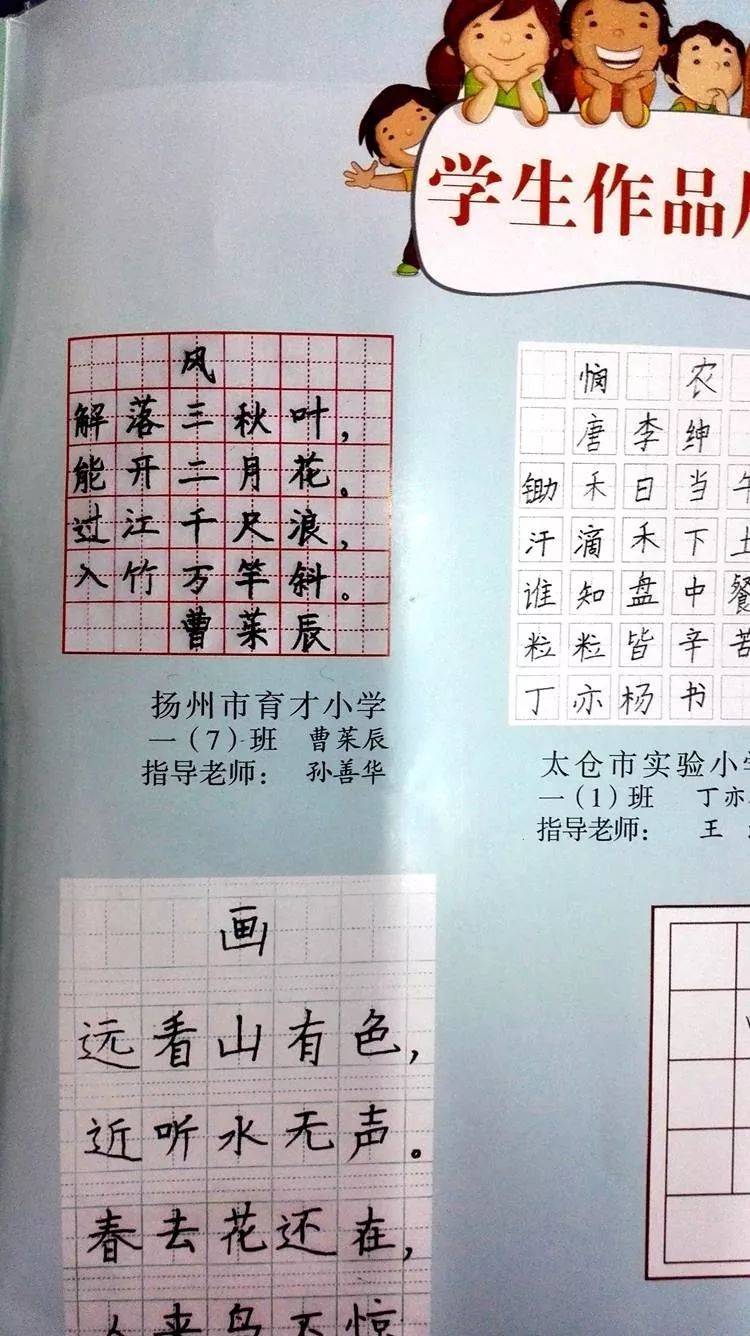 学生作品
风
解落三秋叶，
能开二月花。
过江千尺浪，
入竹万竿斜。
曹茱辰
扬州市育才小学
一（7）班 曹茱辰
指导老师： 孙善华
悯 农
唐 李绅
锄禾日当午
汗滴禾下土
谁知盘中餐
粒粒皆辛苦
丁亦杨书
太仓市实验小学
一（1）班 丁亦
指导老师： 王
画
远看山有色，
近听水无声。
春去花还在，
人来鸟不惊